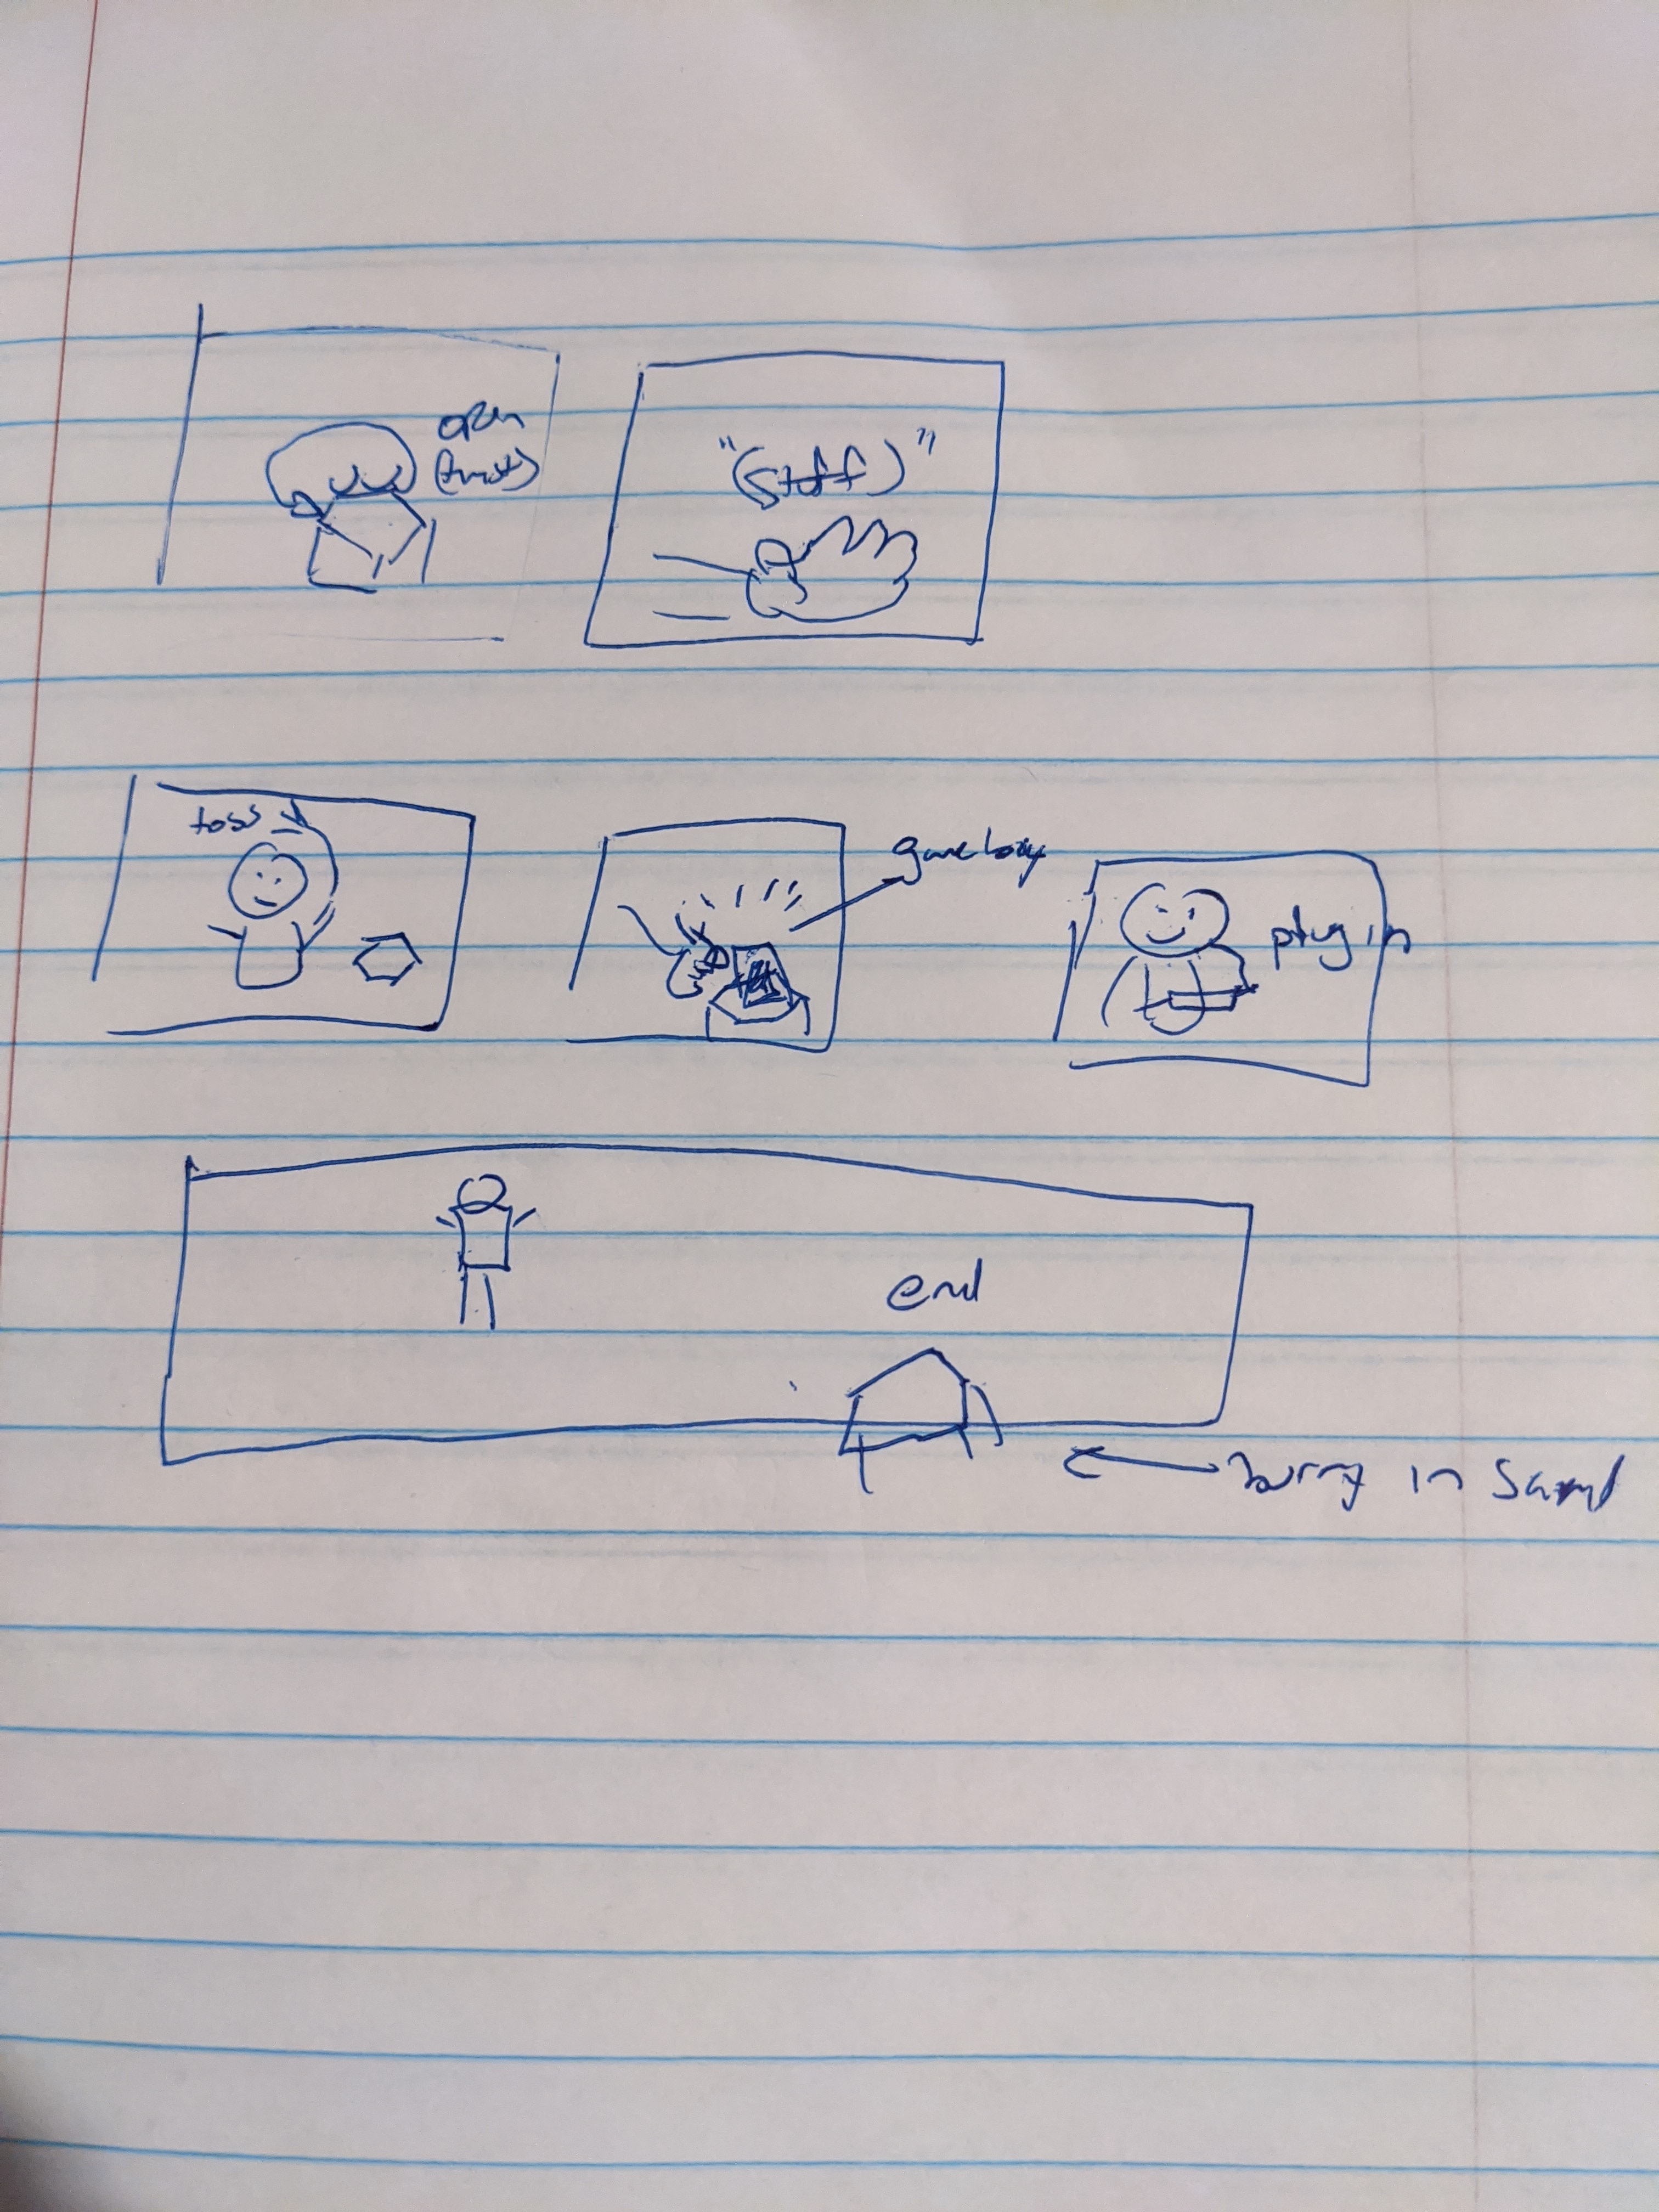 open
"(stuff)"
toss
gameboy
plug in
end
burry in sand